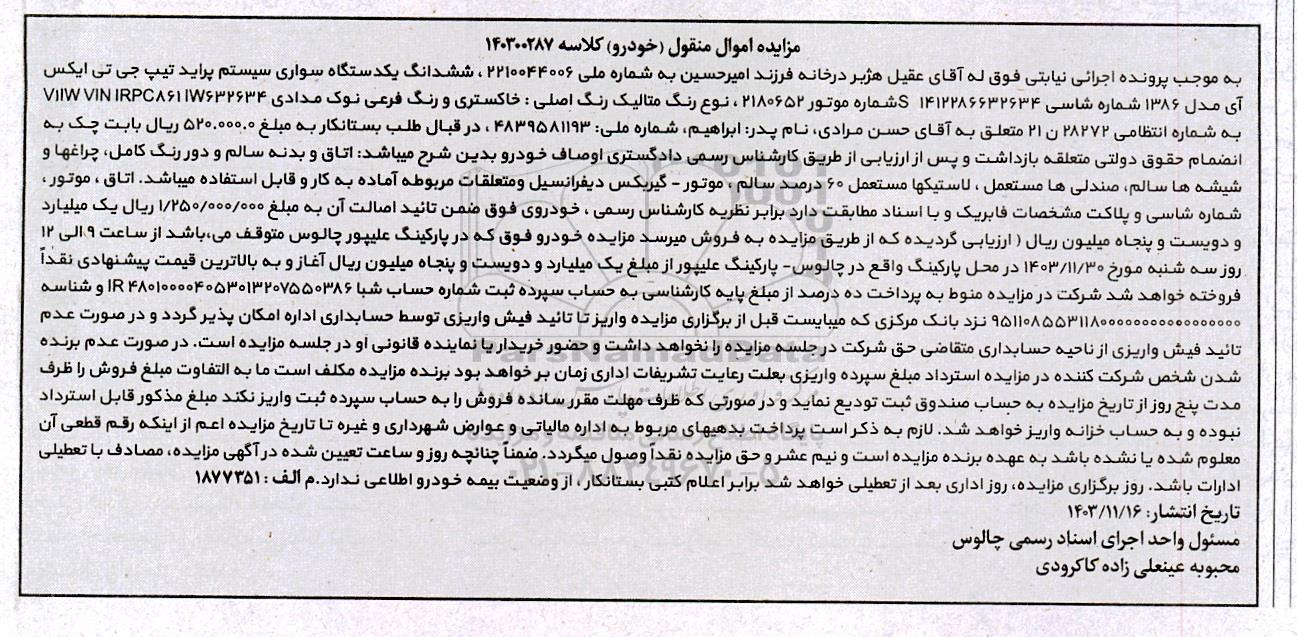 مزایده اموال منقول (خودرو) کلاسه ۱۴۰۳۰۰۲۸۷
به موجب پرونده اجرائی نیابتی فوق له آقای عقیل هژبر درخانه فرزند امیرحسین به شماره ملی ۲۲۱۰۰۴۴۰۰۶ ، ششدانگ یکدستگاه سواری سیستم پراید تیپ جی تی ایکس
آی مدل ۱۳۸۶ شماره شاسی S۱۴۱۲۲۸۶۶۳۲۶۳۴ شماره موتور ۲۱۸۰۶۵۲ ، نوع رنگ متالیک رنگ اصلی : خاکستری و رنگ فرعی نوک مدادی V۱IW VIN IRPC۸۶۱ IW۶۳۲۶۳۴
به شماره انتظامی ۲۸۲۷۲ ن ۲۱ متعلق به آقای حسن مرادی، نام پدر: ابراهیم، شماره ملی: ۴۸۳۹۵۸۱۱۹۳ ، در قبال طلب بستانکار به مبلغ ۵۲۰.۰۰۰.۰ ریال بابت چک به
انضمام حقوق دولتی متعلقه بازداشت و پس از ارزیابی از طریق کارشناس رسمی دادگستری اوصاف خودرو بدین شرح میباشد: اتاق و بدنه سالم و دور رنگ کامل، چراغها و
شیشه ها سالم، صندلی ها مستعمل ، لاستیکها مستعمل ۶۰ درصد سالم ، موتور - گیربکس دیفرانسیل ومتعلقات مربوطه آماده به کار و قابل استفاده میباشد. اتاق ، موتور ،
شماره شاسی و پلاکت مشخصات فابریک و با اسناد مطابقت دارد برابر نظریه کارشناس رسمی ، خودروی فوق ضمن تائید اصالت آن به مبلغ ۱/۲۵۰/۰۰۰/۰۰۰ ریال یک میلیارد
و دویست و پنجاه میلیون ریال ( ارزیابی گردیده که از طریق مزایده به فروش میرسد مزایده خودرو فوق که در پارکینگ علیپور چالوس متوقف می،باشد از ساعت ۹ الی ۱۲
روز سه شنبه مورخ ۱۴۰۳/۱۱/۳۰ در محل پارکینگ واقع در چالوس- پارکینگ علیپور از مبلغ یک میلیارد و دویست و پنجاه میلیون ریال آغاز و به بالاترین قیمت پیشنهادی نقداً
فروخته خواهد شد شرکت در مزایده منوط به پرداخت ده درصد از مبلغ پایه کارشناسی به حساب سپرده ثبت شماره حساب شبا IR ۴۸۰۱۰۰۰۰۴۰۵۳۰۱۳۲۰۷۵۵۰۳۸۶ و شناسه
۹۵۱۱۰۸۵۵۳۱۱۸۰۰۰۰۰۰۰۰۰۰۰۰۰۰۰۰۰۰ نزد بانک مرکزی که میبایست قبل از برگزاری مزایده واریز تا تائید فیش واریزی توسط حسابداری اداره امکان پذیر گردد و در صورت عدم
تائید فیش واریزی از ناحیه حسابداری متقاضی حق شرکت در جلسه مزایده را نخواهد داشت و حضور خریدار یا نماینده قانونی او در جلسه مزایده است. در صورت عدم برنده
شدن شخص شرکت کننده در مزایده استرداد مبلغ سپرده واریزی بعلت رعایت تشریفات اداری زمان بر خواهد بود برنده مزایده مکلف است ما به التفاوت مبلغ فروش را ظرف
مدت پنج روز از تاریخ مزایده به حساب صندوق ثبت تودیع نماید و در صورتی که ظرف مهلت مقرر سانده فروش را به حساب سپرده ثبت واریز نکند مبلغ مذکور قابل استرداد
نبوده و به حساب خزانه واریز خواهد شد. لازم به ذکر است پرداخت بدهیهای مربوط به اداره مالیاتی و عوارض شهرداری و غیره تا تاریخ مزایده اعم از اینکه رقم قطعی آن
معلوم شده یا نشده باشد به عهده برنده مزایده است و نیم عشر و حق مزایده نقداً وصول میگردد. ضمناً چنانچه روز و ساعت تعیین شده در آگهی مزایده، مصادف با تعطیلی
ادارات باشد. روز برگزاری مزایده، روز اداری بعد از تعطیلی خواهد شد برابر اعلام کتبی بستانکار ، از وضعیت بیمه خودرو اطلاعی ندارد.م الف : ۱۸۷۷۳۵۱
تاریخ انتشار: ۱۴۰۳/۱۱/۱۶
مسئول واحد اجرای اسناد رسمی چالوس
محبوبه عینعلی زاده کاکرودی
ParsNamadData
۰۲۱-۸۸۳۴۹۶۷۰-۵